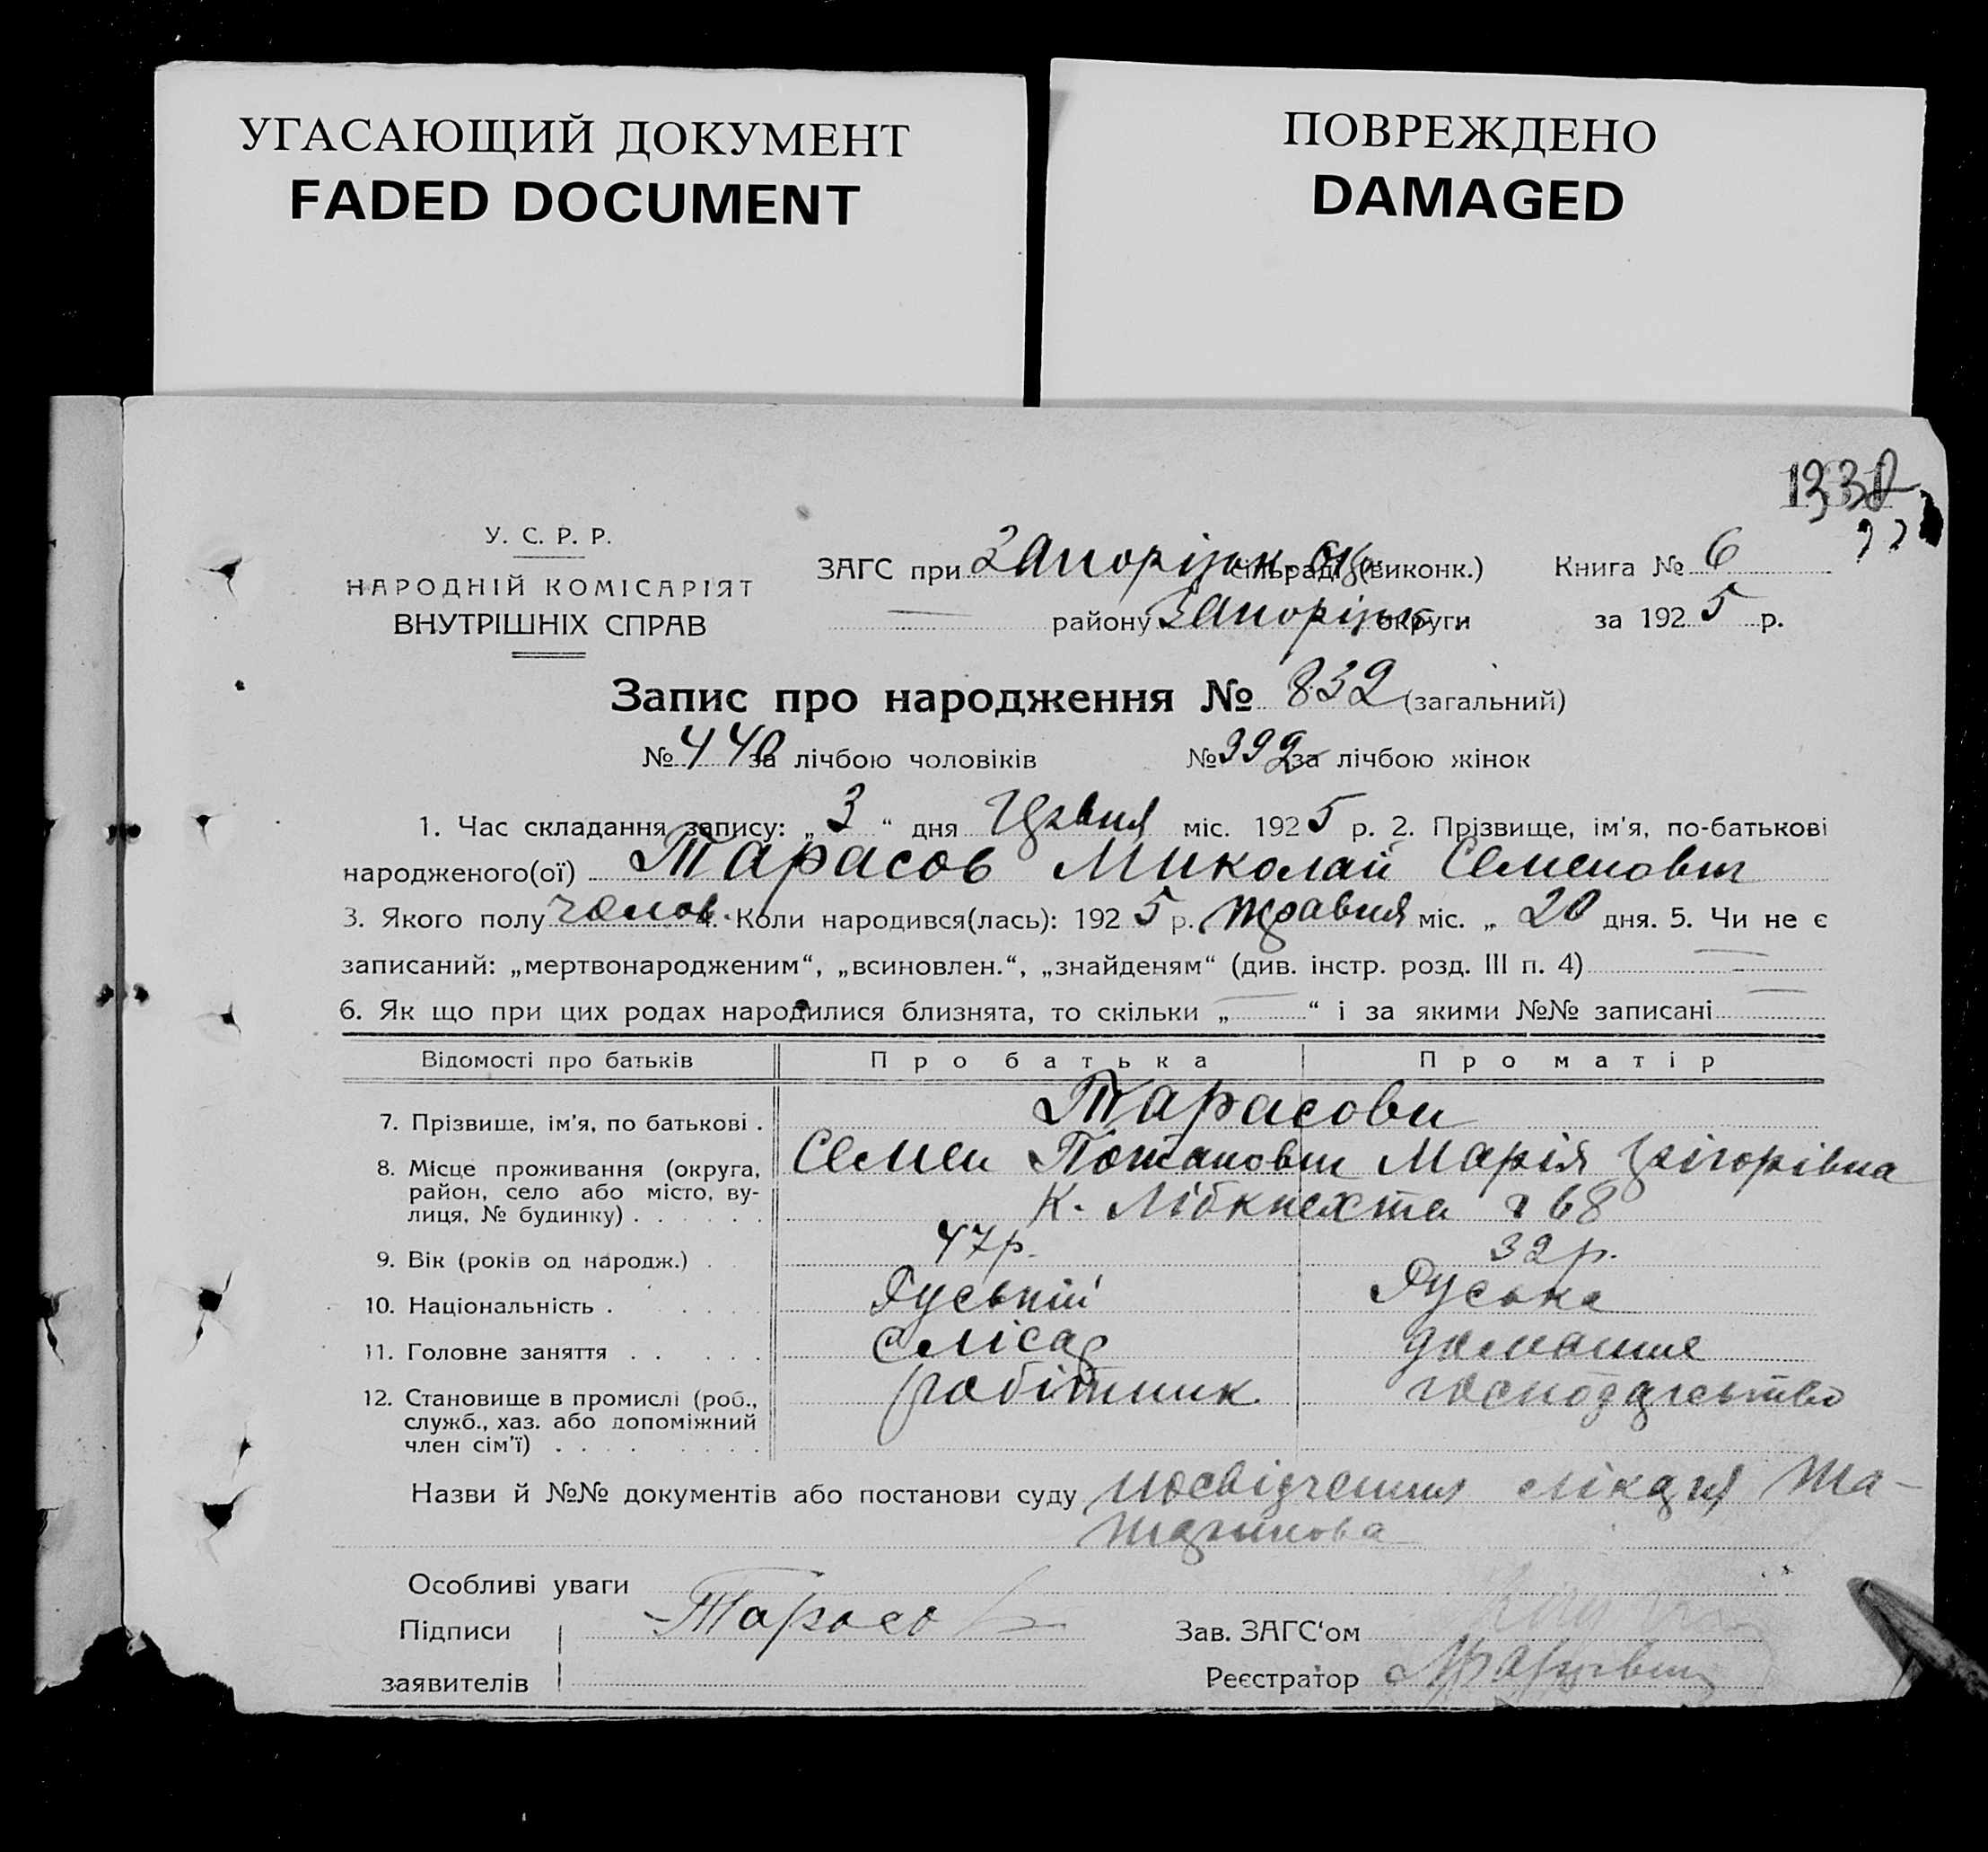 УГАСАЮЩИЙ ДОКУМЕНТ
FADED DOCUMENT
ПОВРЕЖДЕНО
DAMAGED
У. С. Р. Р.
НАРОДНІЙ КОМІСАРІЯТ
ВНУТРІШНІХ СПРАВ
ЗАГС при Запорізьк. Окр. сільраді (виконк.)
району Запорізьк. округи
Книга № 6
за 1925 р.
Запис про народження № 832 (загальний)
№ 440 за лічбою чоловіків № 392 за лічбою жінок
1. Час складання запису: „ 3 “ дня Червня міс. 1925 р. 2. Прізвище, ім'я, по-батькові
народженого(ої) Тарасов Миколай Семенович
3. Якого полу чолов. 4. Коли народився(лась): 1925 р. травня міс. „ 20 дня. 5. Чи не є
записаний: „мертвонародженим“, „всиновлен.“, „знайденям“ (див. інстр. розд. III п. 4)
6. Як що при цих родах народилися близнята, то скільки „ “ і за якими №№ записані
Відомості про батьків Про батька Про матір
7. Прізвище, ім'я, по батькові . Тарасови
Семен Потапович Марія Грігорівна
8. Місце проживання (округа,
район, село або місто, ву-
лиця, № будинку) . . . . . . К. Лібкнехта 68
9. Вік (років од народж.) . 47 р. 32 р.
10. Національність . Руський Руська
11. Головне заняття . . слісар домашнє
12. Становище в промислі (роб., робітник. господарство
служб., хаз. або допоміжний
член сім'ї)
Назви й №№ документів або постанови суду посвідчення лікаря
Особливі уваги
Підписи Тарасов
заявителів
Зав. ЗАГС‘ом
Реєстратор